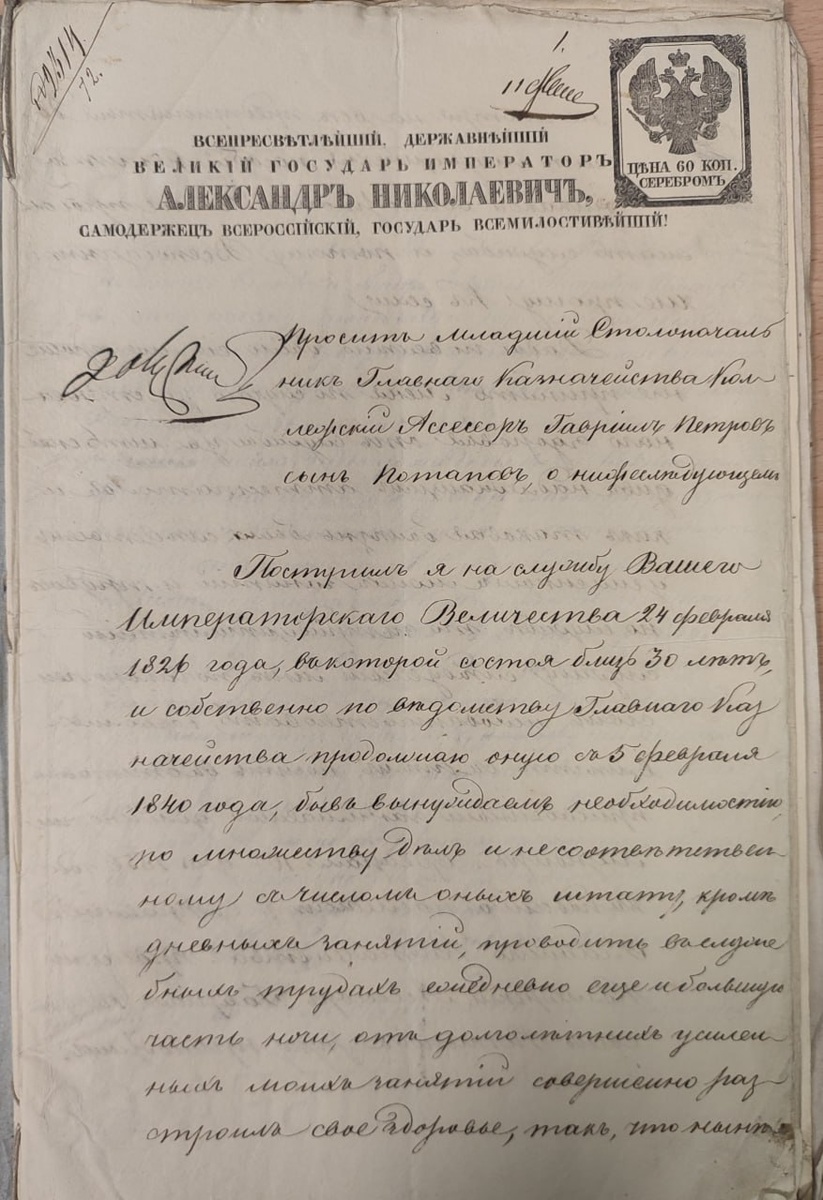 1.
72.
ВСЕПРЕСВѢТЛѢЙШІЙ, ДЕРЖАВНѢЙШІЙ
ВЕЛИКІЙ ГОСУДАРЬ ИМПЕРАТОРЪ
АЛЕКСАНДРЪ НИКОЛАЕВИЧЪ,
САМОДЕРЖЕЦЪ ВСЕРОССІЙСКІЙ, ГОСУДАРЬ ВСЕМИЛОСТИВѢЙШІЙ!
ЦѢНА 60 КОП.
СЕРЕБРОМЪ
Проситъ Младшій Столоначаль
никъ Главнаго Казначейства Кол-
лежскій Ассесоръ Гавріилъ Петровъ
сынъ Потаповъ, о нижеслѣдующемъ
Поступилъ я на службу Вашего
Императорскаго Величества 24 февраля
1826 года, въ которой состоя близъ 30 лѣтъ,
и собственно по вѣдомству Главнаго Каз
начейства продолжаю оную съ 5 февраля
1840 года, бывъ вынуждаемъ необходимостію,
по множеству дѣлъ и несоотвѣтствен-
ному съ числомъ оныхъ штату, кромѣ
дневныхъ занятій, проводить въ служе
бныхъ трудахъ ежедневно еще и большую
часть ночи, отъ долголѣтнихъ усилен-
ныхъ моихъ занятій совершенно раз-
строилъ свое здоровье, такъ, что нынѣ